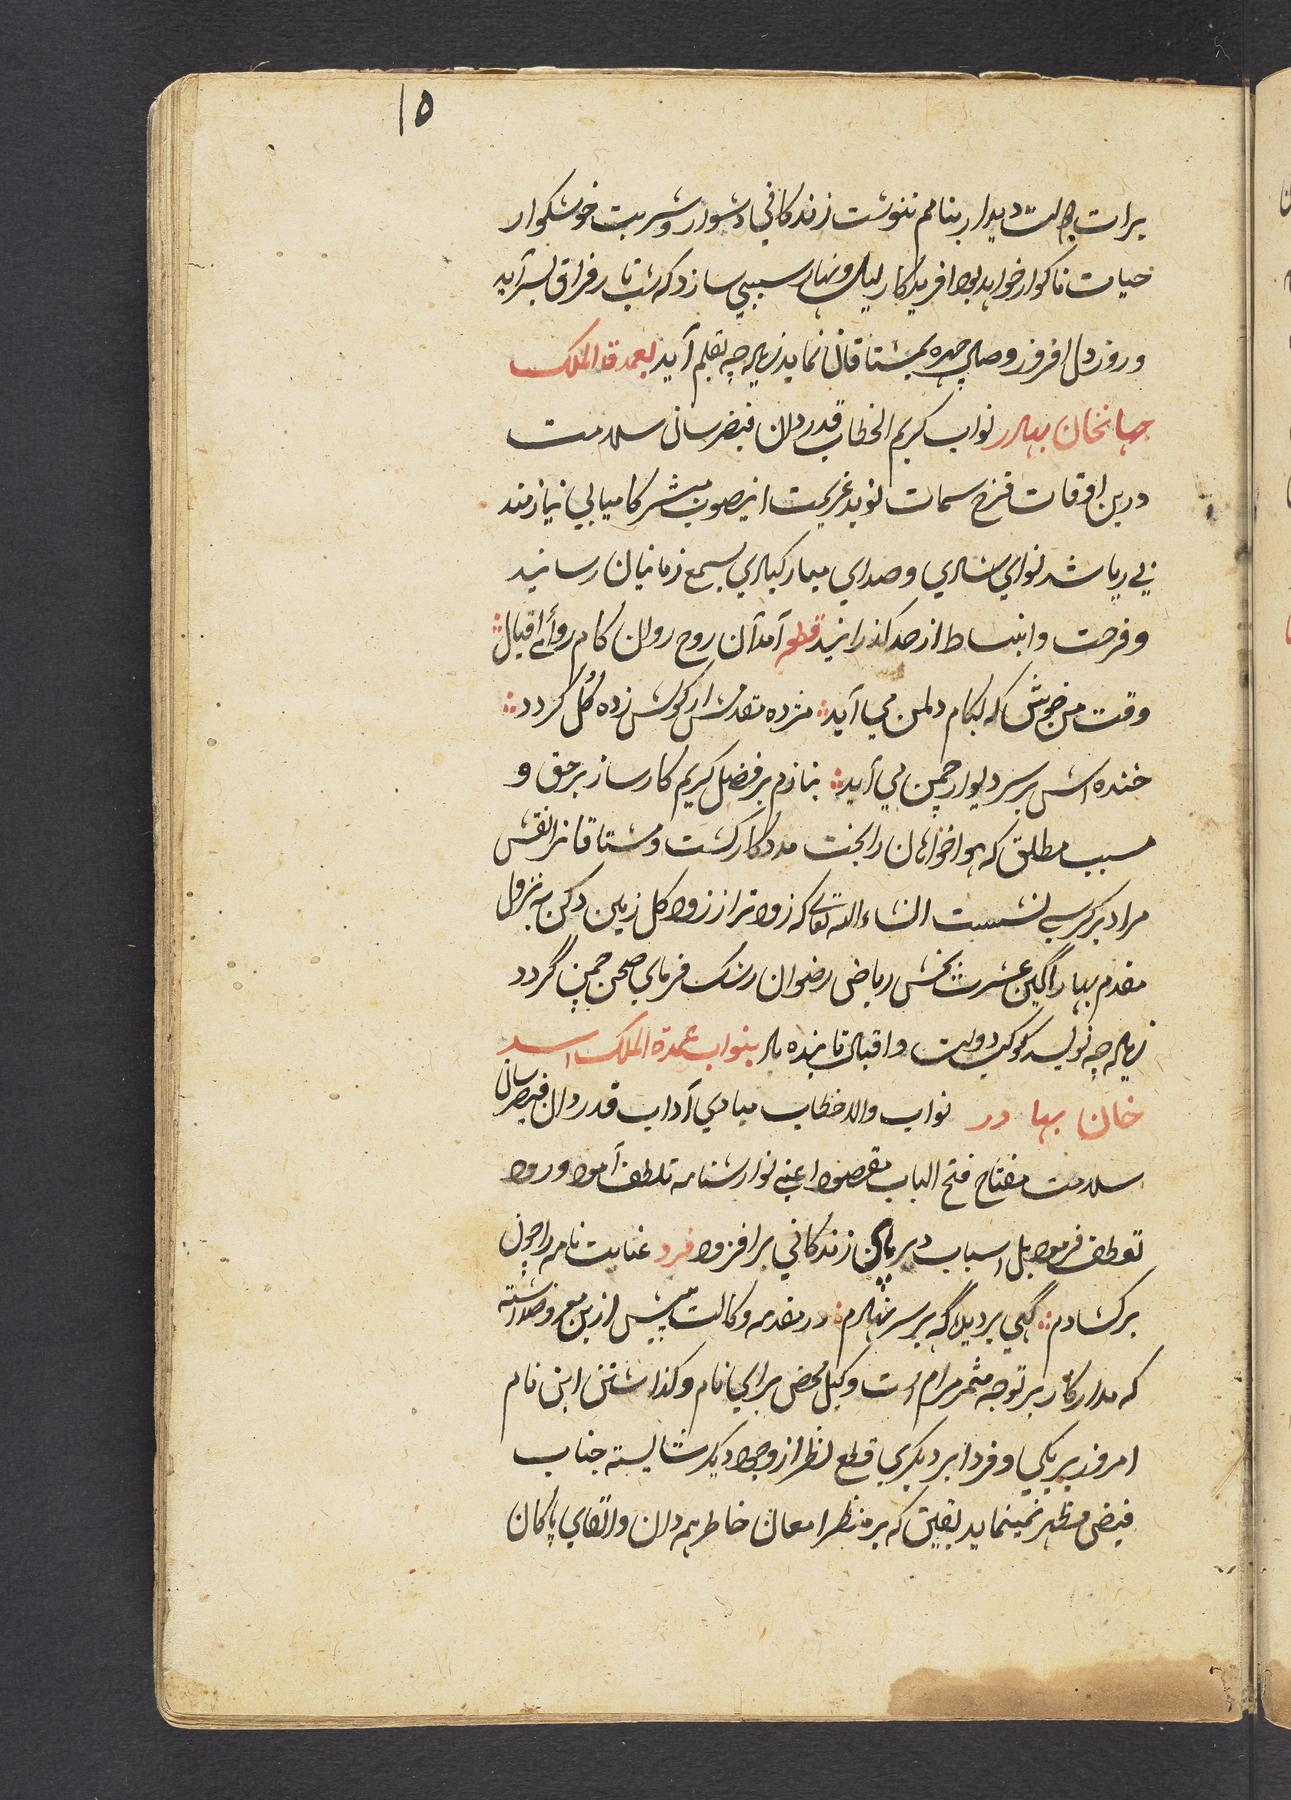 ۱۵
برات دیدار بنامم ننوشت زندکانی دشوار و شربت خوشکوار
حیات ناکوار خواهد بود افریدکار لیل و نهار سببی سازد که شب تار فراق بسر آید
و روز دل افروز وصال چهره بمشتاقان نماید زیاده چه بقلم آید بعمدة الملک
جهانخان بهادر نواب کریم الخطاب قدردان فیضرسان سلامت
درین اوقات فرخ سمات نوید عزیمت اینصوب مبشر کامیابی نیازمند
بی ریا شد نوای شادی و صدای مبارکبادی بسمع زمانیان رسانید
و فرحت و انبساط از حد کذرانید قطعه آمد آن روح روان کام روای اقبال
وقت من خوش که بکام دل من می آید مژده مقدمش ار کوش زده کل کردد
خنده اش بر سر دیوار چمن می آید بنازم بر فضل کریم کارساز برحق و
مسبب مطلق که هواخواهان را بخت مددکار کشت و مشتاقانرا نقش
مراد بر کرسی نشست انشاءالله تعالی که زود تر از زود کل زمین دکن به نزول
مقدم بهار آکین عشرت بخش ریاض رضوان رشک فرمای صحن چمن گردد
زیاده چه نویسد کوکب دولت و اقبال تابنده باد بنواب عمدة الملک اسد
خان بهادر نواب والا خطاب مبادی آداب قدردان فیضرسان
سلامت مفتاح فتح الباب مقصود اعنی نوازشنامه تلطف آمود ورود
تعطف فرمود بل اسباب زندکانی بر افزود فرد عنایت نامه را چون
برکشادم گهی بر دیده گه بر سر نهادم در مقدمه وکالت پیش ازین معروضداشته
که مدار کار بر توجه مثمر مرام است وکیل محض برای نام و کذاشتن این نام
امروز بر یکی و فردا بر دیکری قطع نظر از وجوه دیکر شایسته جناب
فیض مظهر نمینماید یقین که بر منظر امعان خاطر همه دان و اتقای پاکان